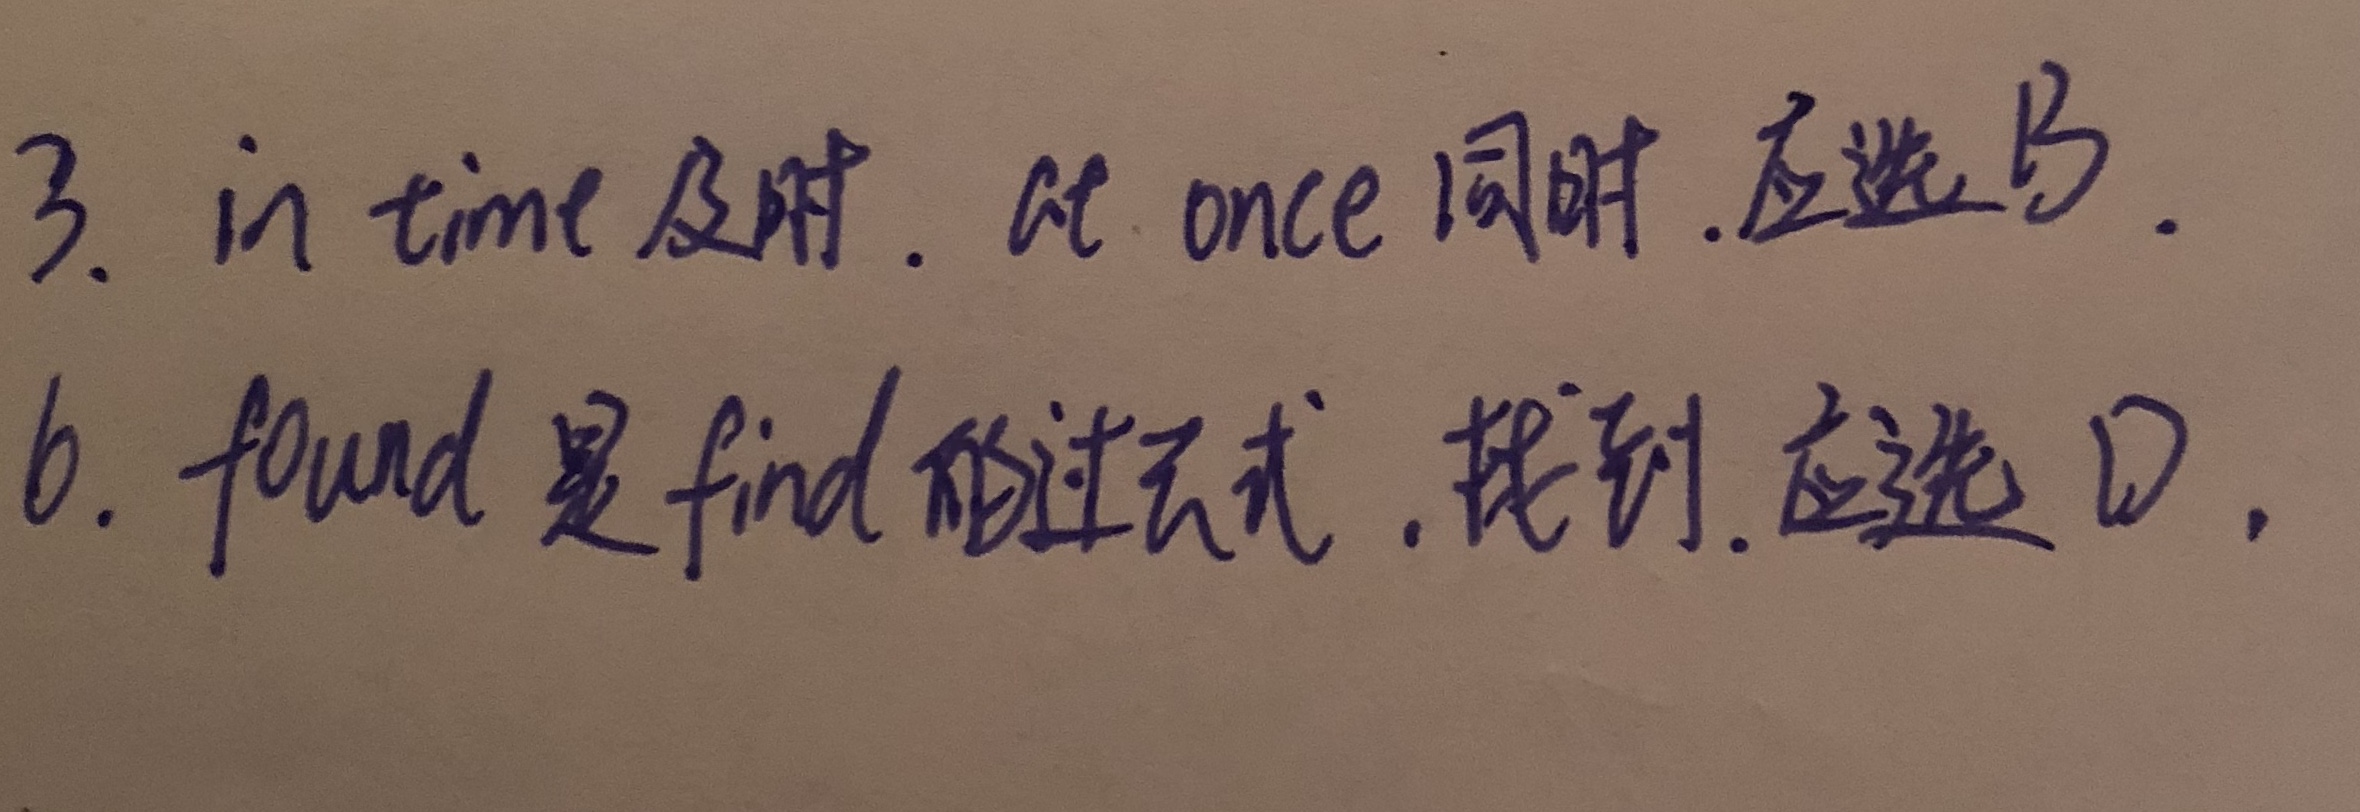 3. in time 及时. at once 同时. 应选 B.
6. found 是 find 的过去式. 找到. 应选 D.